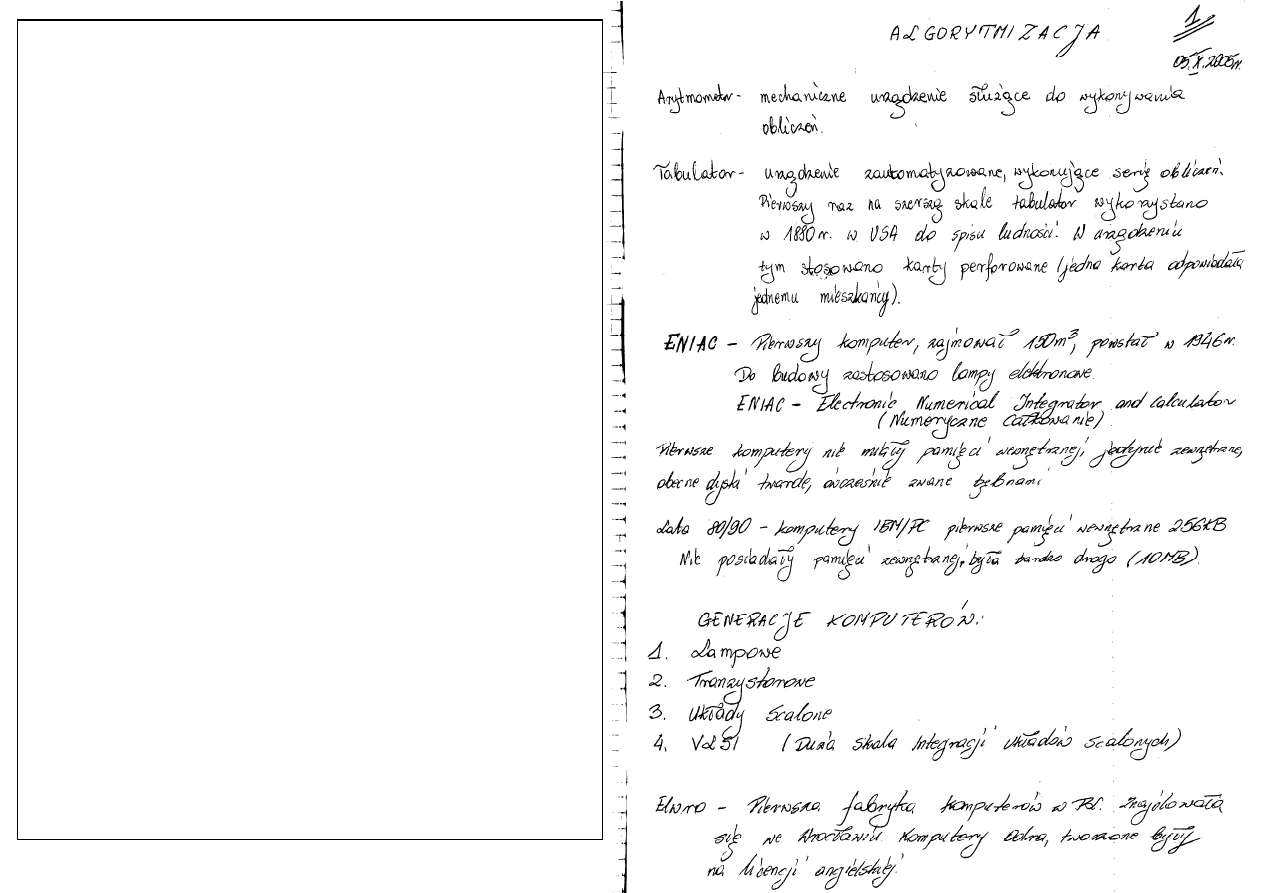 ALGORYTMIZACJA
1
05.X.2005r.
Arytmometr - mechaniczne urządzenie służące do wykonywania
obliczeń.
Tabulator - urządzenie zautomatyzowane, wykonujące serię obliczeń.
Pierwszy raz na szerszą skale tabulator wykorzystano
w 1880r. w USA do spisu ludności. W urządzeniu
tym stosowano karty perforowane (jedna karta odpowiadała
jednemu mieszkańcy).
ENIAC - Pierwszy komputer, zajmował 150m³, powstał w 1946r.
Do budowy zastosowano lampy elektronowe.
ENIAC - Electronic Numerical Integrator and Calculator
(Numeryczne Całkowanie)
Pierwsze komputery nie miały pamięci wewnętrznej, jedynie zewnętrzne,
obecne dyski twarde, ówcześnie zwane bębnami
Lata 80/90 - komputery IBM/PC pierwsze pamięci wewnętrzne 256kB
Nie posiadały pamięci zewnętrznej, była bardzo droga (10MB).
GENERACJE KOMPUTERÓW:
1. Lampowe
2. Tranzystorowe
3. Układy Scalone
4. VLSI (Duża Skala Integracji Układów Scalonych)
Elwro - Pierwsza fabryka komputerów w Pol. Znajdowała
się we Wrocławiu. Komputery Odra, tworzone były
na licencji angielskiej.